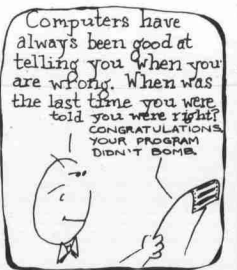 Computers have
always been good at
telling you when you
are wrong. When was
the last time you were
told you were right?
CONGRATULATIONS
YOUR PROGRAM
DIDN'T BOMB.